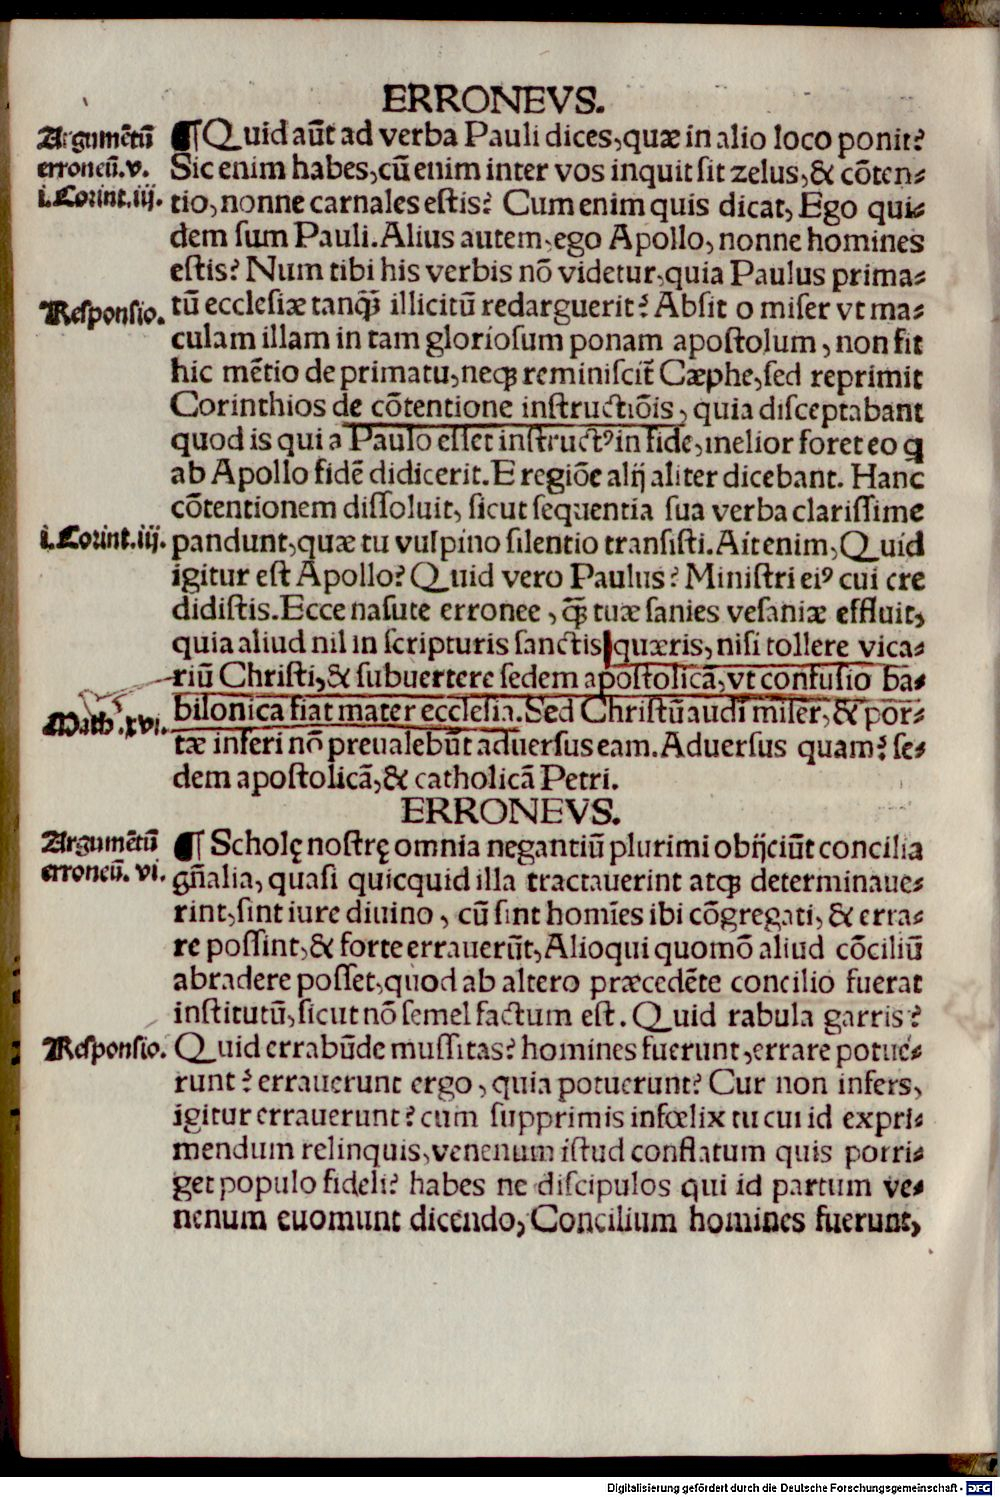 ERRONEVS.
Argumētū
erroneū. v.
i. Corint. iij.
¶ Quid aūt ad verba Pauli dices, quæ in alio loco ponit?
Sic enim habes, cū enim inter vos inquit sit zelus, & cōten⸗
tio, nonne carnales estis? Cum enim quis dicat, Ego qui⸗
dem sum Pauli. Alius autem, ego Apollo, nonne homines
estis? Num tibi his verbis nō videtur, quia Paulus prima⸗
Responsio.
tū ecclesiæ tanqꝫ̄ illicitū redarguerit? Absit o miser vt ma⸗
culam illam in tam gloriosum ponam apostolum, non fit
hic mētio de primatu, neqꝫ reminiscit̄ Cæphe, sed reprimit
Corinthios de cōtentione instructiōis, quia disceptabant
quod is qui a Paulo esset instructꝰ in fide, melior foret eo q̄
ab Apollo fidē didicerit. E regiōe alij aliter dicebant. Hanc
cōtentionem dissoluit, sicut sequentia sua verba clarissime
i. Corint. iij.
pandunt, quæ tu vulpino silentio transisti. Ait enim, Quid
igitur est Apollo? Quid vero Paulus? Ministri eiꝰ cui cre
didistis. Ecce nasute erronee, qꝫ̄ tuæ sanies vesaniæ effluit,
quia aliud nil in scripturis sanctis quæris, nisi tollere vica⸗
riū Christi, & subuertere sedem apostolicā, vt confusio ba⸗
Math. xvi.
bilonica fiat mater ecclesia. Sed Christū audi miser, & por⸗
tæ inferi nō preualebūt aduersus eam. Aduersus quam? se⸗
dem apostolicā, & catholicā Petri.
ERRONEVS.
Argumētū
erroneū. vi.
¶ Scholę nostrę omnia negantiū plurimi obijciūt concilia
gn̄alia, quasi quicquid illa tractauerint atqꝫ determinaue⸗
rint, sint iure diuino, cū sint homīes ibi cōgregati, & erra⸗
re possint, & forte errauerūt, Alioqui quomō aliud cōciliū
abradere posset, quod ab altero præcedēte concilio fuerat
institutū, sicut nō semel factum est. Quid rabula garris?
Responsio.
Quid errabūde mussitas? homines fuerunt, errare potue⸗
runt? errauerunt ergo, quia potuerunt? Cur non infers,
igitur errauerunt? cum supprimis infœlix tu cui id expri⸗
mendum relinquis, venenum istud conflatum quis porri⸗
get populo fideli? habes ne discipulos qui id partum ve⸗
nenum euomunt dicendo, Concilium homines fuerunt,
Digitalisierung gefördert durch die Deutsche Forschungsgemeinschaft - DFG